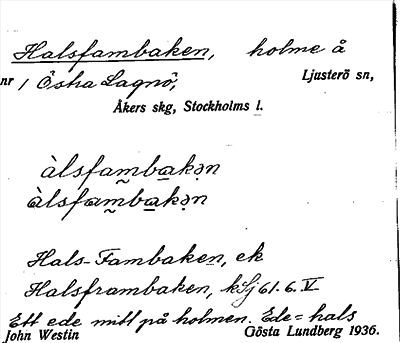 Halsfambaken, holme å
nr 1 Östra Lagnö, Ljusterö sn,
Åkers skg, Stockholms l.
àlsfambakən
àlsfambakən
Hals-Fambaken, ek
Halsframbaken, 61.6.V
Ett ede mitt på holmen. Ede = hals
John Westin Gösta Lundberg 1936.